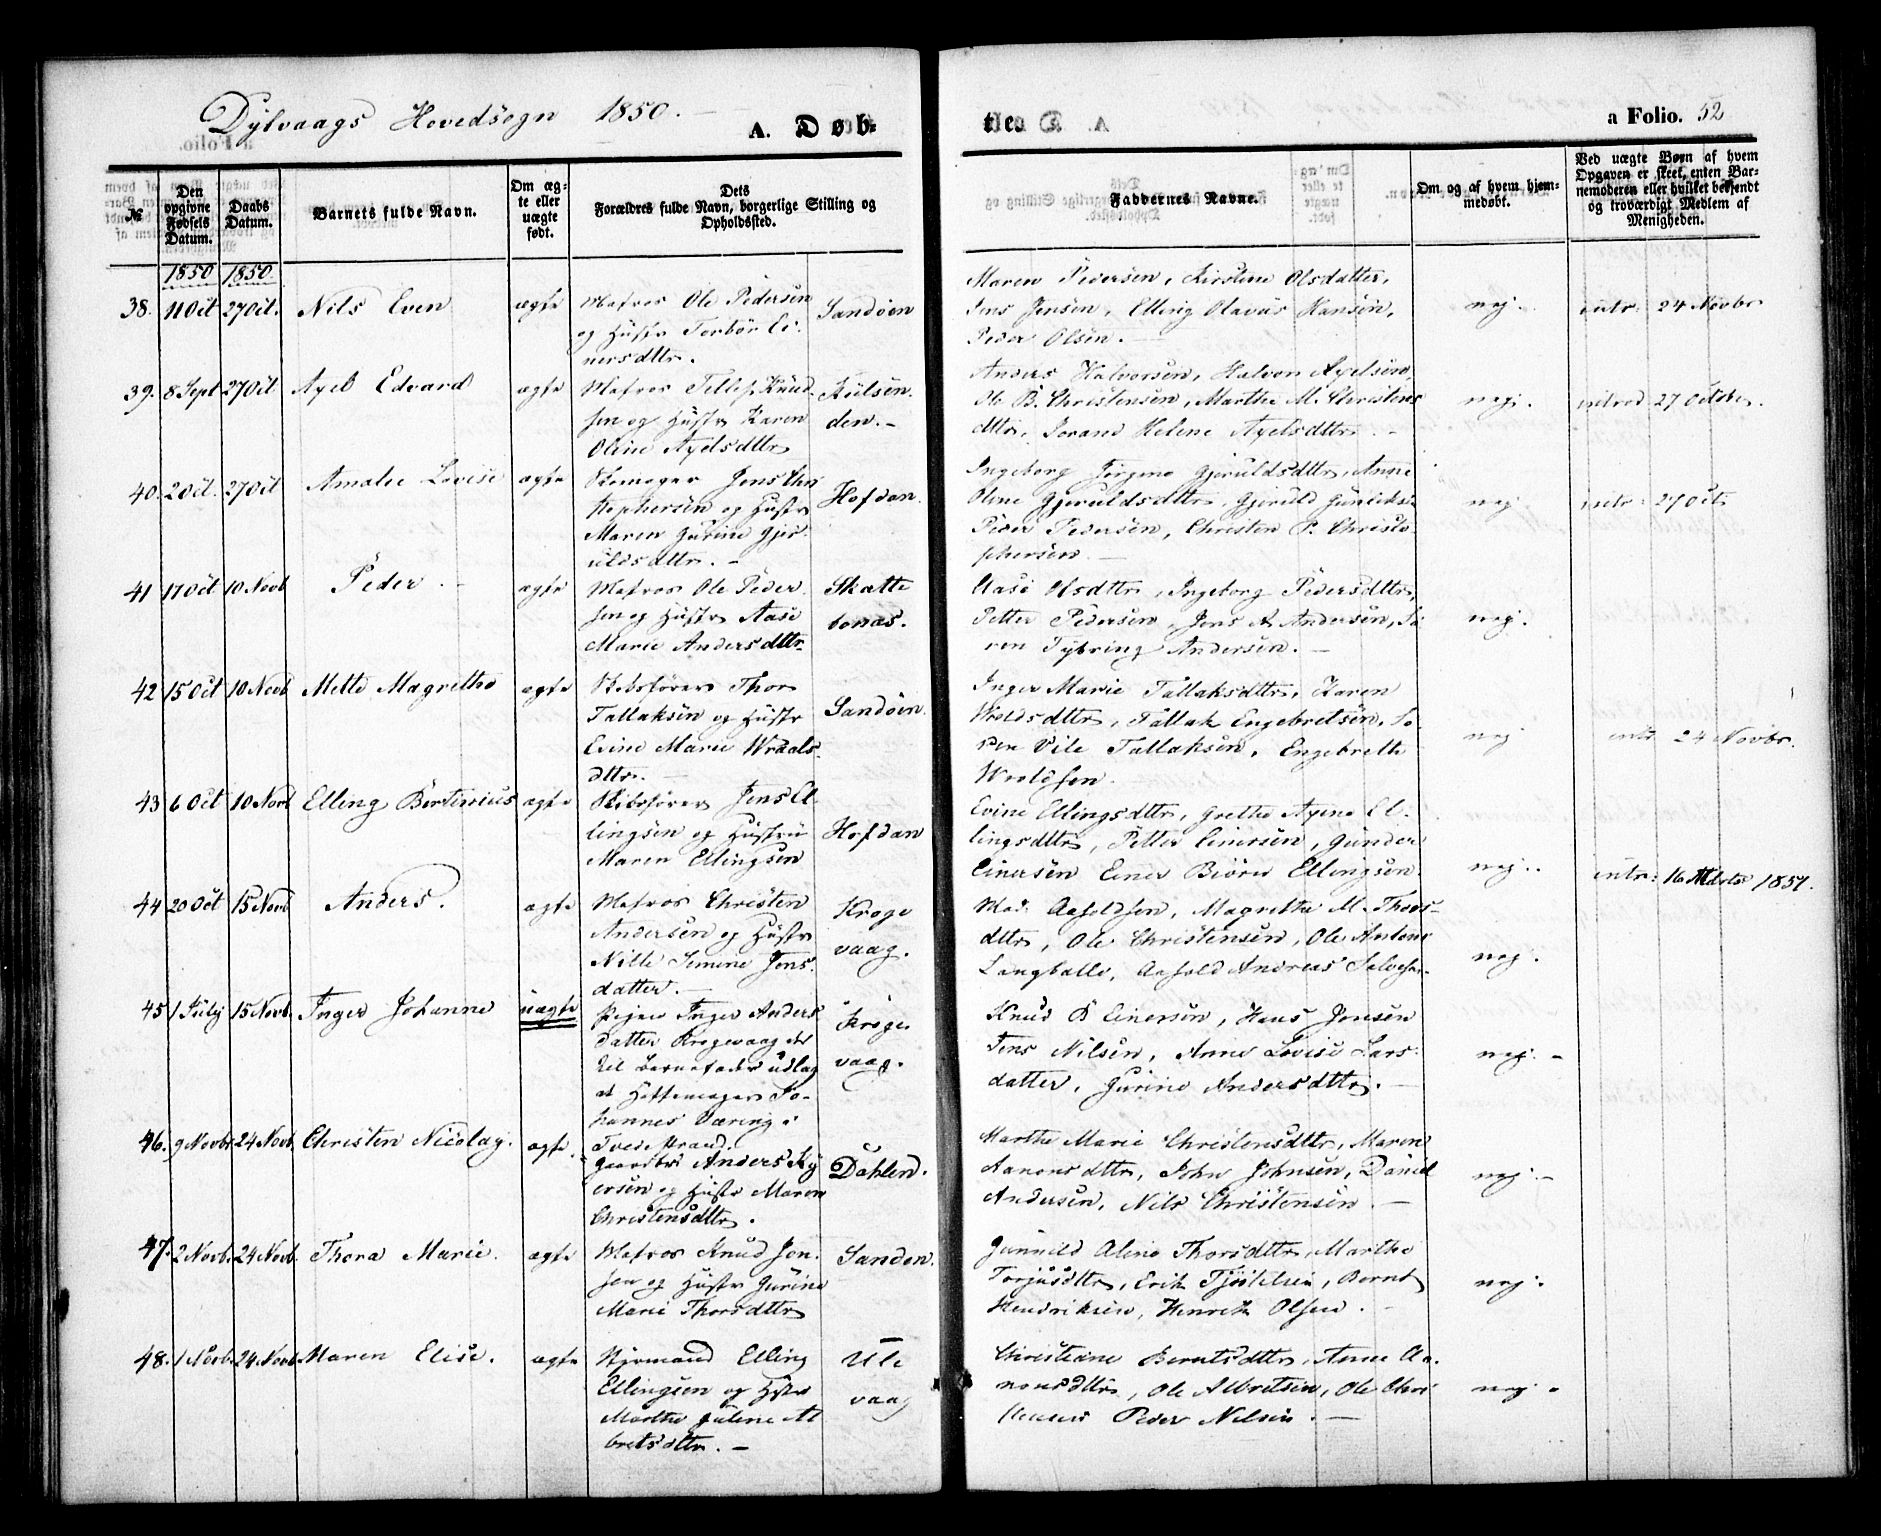 Dÿbvaags Hovedsogn 1850. —
A. Døb-
tes
a Folio. 52
№
Den opgivne Fødsels Datum.
Daabs Datum.
Barnets fulde Navn.
Om ægte eller uægte født.
Dets Forældres fulde Navn, borgerlige Stilling og Opholdssted.
Faddernes Navne.
Om og af hvem hjemmedøbt.
Ved uægte Børn af hvem Opgaven er skeet, enten Barnemoderen eller hvilket bekjendt og troværdigt Medlem af Menigheden.
1850 1850.
38. 11 Oct 27 Oct. Nils Even ægte
Matros Ole Pedersen
og Hustr Torbor Ei-
nersdttr.
Sandöen
Maren Pedersen, Kirstine Olsdatter,
Jens Jensen, Elling Olavus Hansen,
Peder Olsen. —
nej. intr: 24 Novbr
39. 8 Sept 27 Oct Axel Edvard ægte
Matros Tellef Knud-
sen og Hustr Karen
Oline Axelsdttr
den. —
Anders Halvorsen, Halvor Axelsen,
Ole B. Christensen, Marthe M. Christens
dttr, Jorand Helene Axelsdttr. —
nej. introd 27 October.
40. 2 Oct. 27 Oct Amalie Lovise ægte
Skomager Jens Chri
stophersen og Hustr
Maren Gurine Gjer-
uldsdttr. —
Hofdan
Ingeborg Jørgine Gjeruldsdttr, Anne
Oline Gjeruldsdttr, Gjeruld Gunleks:
Peder Pedersen, Christen P. Christo-
phersen —
nej intr: 27 Oct
41 17 Oct 10 Novb Peder — ægte
Matros Ole Peder-
sen og Hustr Aase
Marie Andersdttr
Skatte
bonas.
Aase Olsdttr, Ingeborg Pedersdttr,
Petter Pedersen, Jens A. Andersen, Sö
ren Dybring Andersen. —
nej.
42 15 Oct 10 Novb Mette Magrethe ægte
Skibsfører Thor
Tallaksen og Hustr
Evine Marie Wraals-
dttr. —
Sandöen
Inger Marie Tallaksdttr, Karen
Wroldsdttr, Tallak Engebretsen, So
ren Vile Tallaksen, Engebreth
Wroldsen
nej intr 24 Novbr.
43 6 Oct 10 Novb Elling Bertinius ægte
Skibsfører Jens El
lingsen og Hustru
Maren Ellingsen
Hofdan
Evine Ellingsdttr, Grethe Axine El-
lingsdttr, Petter Einersen, Gunder
Einersen Einer Biörn Ellingsen
nej. intr: 16 Marts 1851.
44 20 Oct 15 Novb Anders. ægte
Matros Christen
Andersen og Hustr
Nille Simine Jens-
datter. —
Kroge
vaag.
Mad. Aasoldsen, Magrethe M. Thors-
dttr, Ole Christensen, Ole Antons
Langballe, Aasold Andreas Salvesen.
nej.
45 1 July 15 Novb. Inger Johanne uægte
Pigen Inger Anders
datter Krogevaag der
til Barnefader udlag
at Hattemager Jo-
hannes Væring i
Tvedestrand.
Kroge
vaag.
Knud B Einersen, Hans Jensen
Jens Nilsen, Anne Lovise Lars-
datter, Gurine Andersdttr. —
nej. —
46. 9 Novbr 24 Novb. Christen Nicolay. ægte.
Gaardbr Anders Ky
ersen og Hustr Maren
Christensdttr.
Dahlen.
Marthe Marie Christensdttr, Maren
Aanonsdttr, John Johnsen, Daniel
Andersen, Nils Christensen —
nej. —
47. 2 Novb. 24 Novb. Thora Marie. ægte
Matros Knud Jen-
sen og Hustr Gurine
Marie Thorsdttr
Sandøn.
Gunnild Aline Thorsdttr, Marthe
Torjusdttr, Erik Tjöstelsen, Bernt
Hendriksen, Henrik Olsen. —
nej.
48. 1 Novb. 24 Novb Maren Elise. ægte
Styrmand Elling
Ellingsen og Hustr
Marthe Juline Al
bretsdttr. —
Ule
vaag
Christiane Berntsdttr, Anne Aa-
nonsdttr, Ole Albretsen, Ole Chri
stensen Peder Nilsen. —
nej.